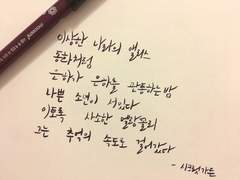 이상한 나라의 앨리스
동화처럼
은하가 은하를 관통하는 밤
나쁜 소년이 서있다
이토록 사소한 멜랑꼴리
그는 추억의 속도로 걸어갔다
- 시크릿가든